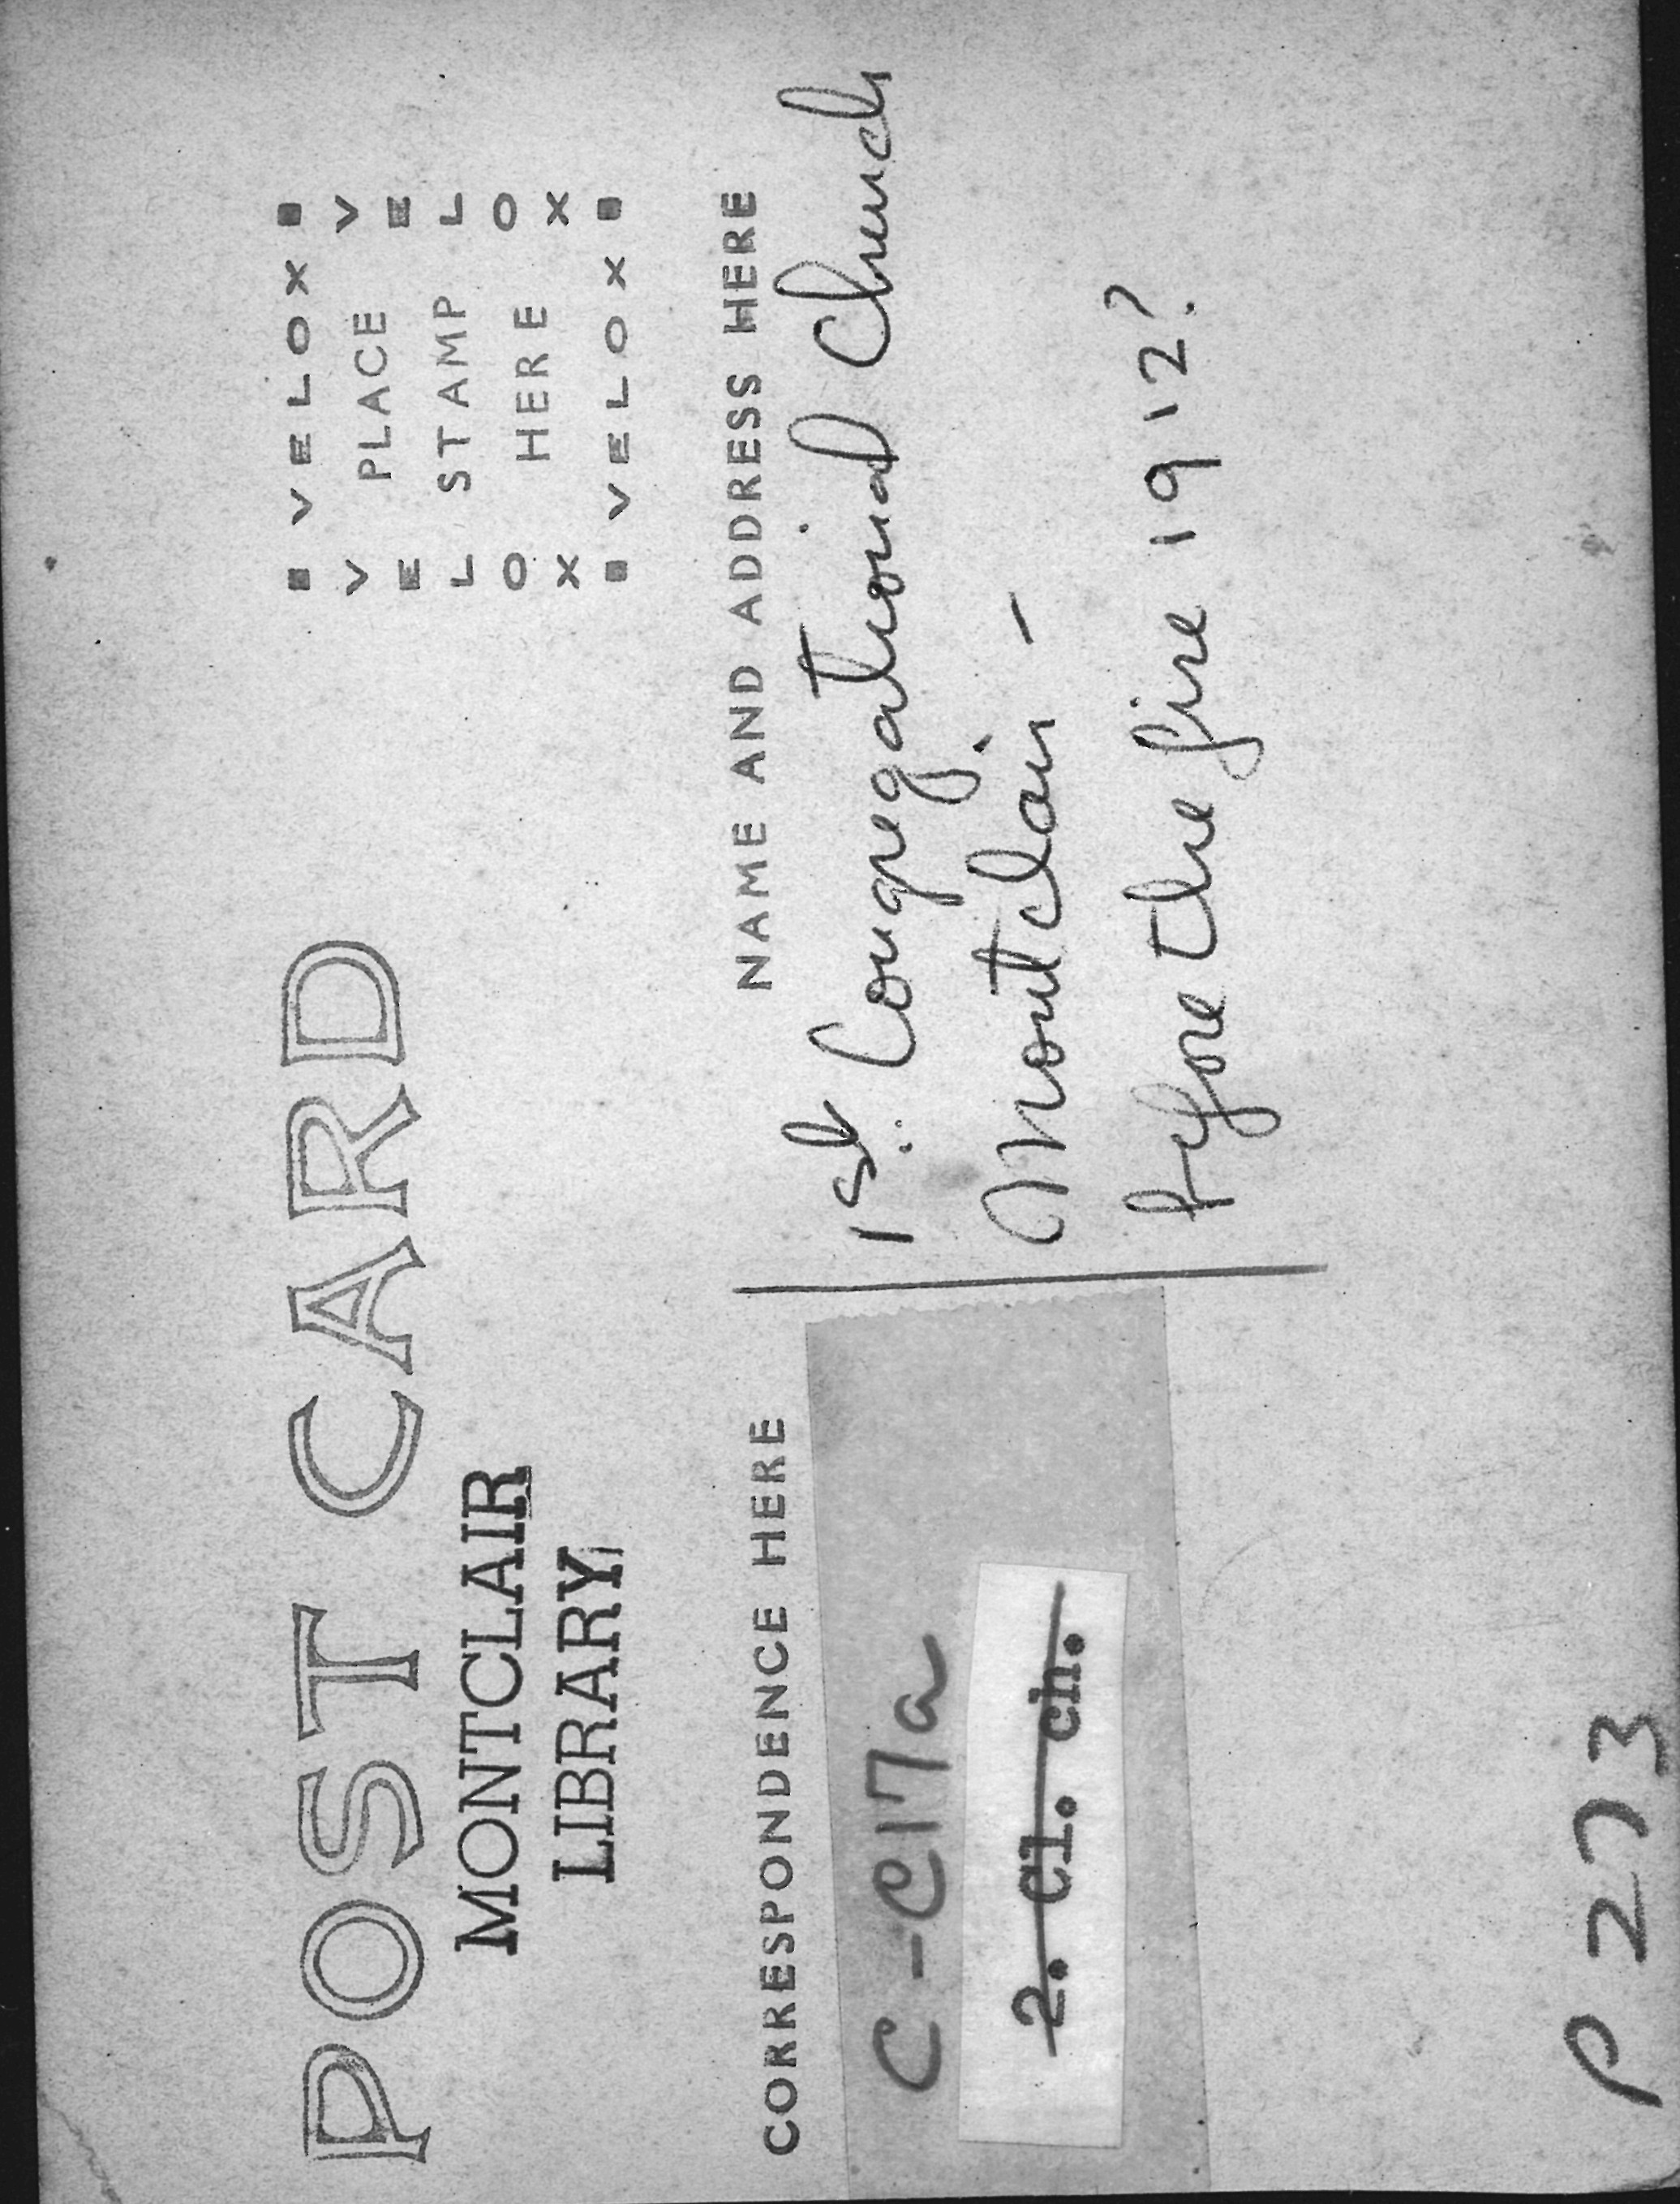 POST CARD
MONTCLAIR
LIBRARY
VELOX
V PLACE V
E E
L STAMP L
O HERE O
X X
VELOX
CORRESPONDENCE HERE
NAME AND ADDRESS HERE
1st Congregational Church
Montclair -
before the fire 1912?
C-C17a
2. Cl. ch.
P 273